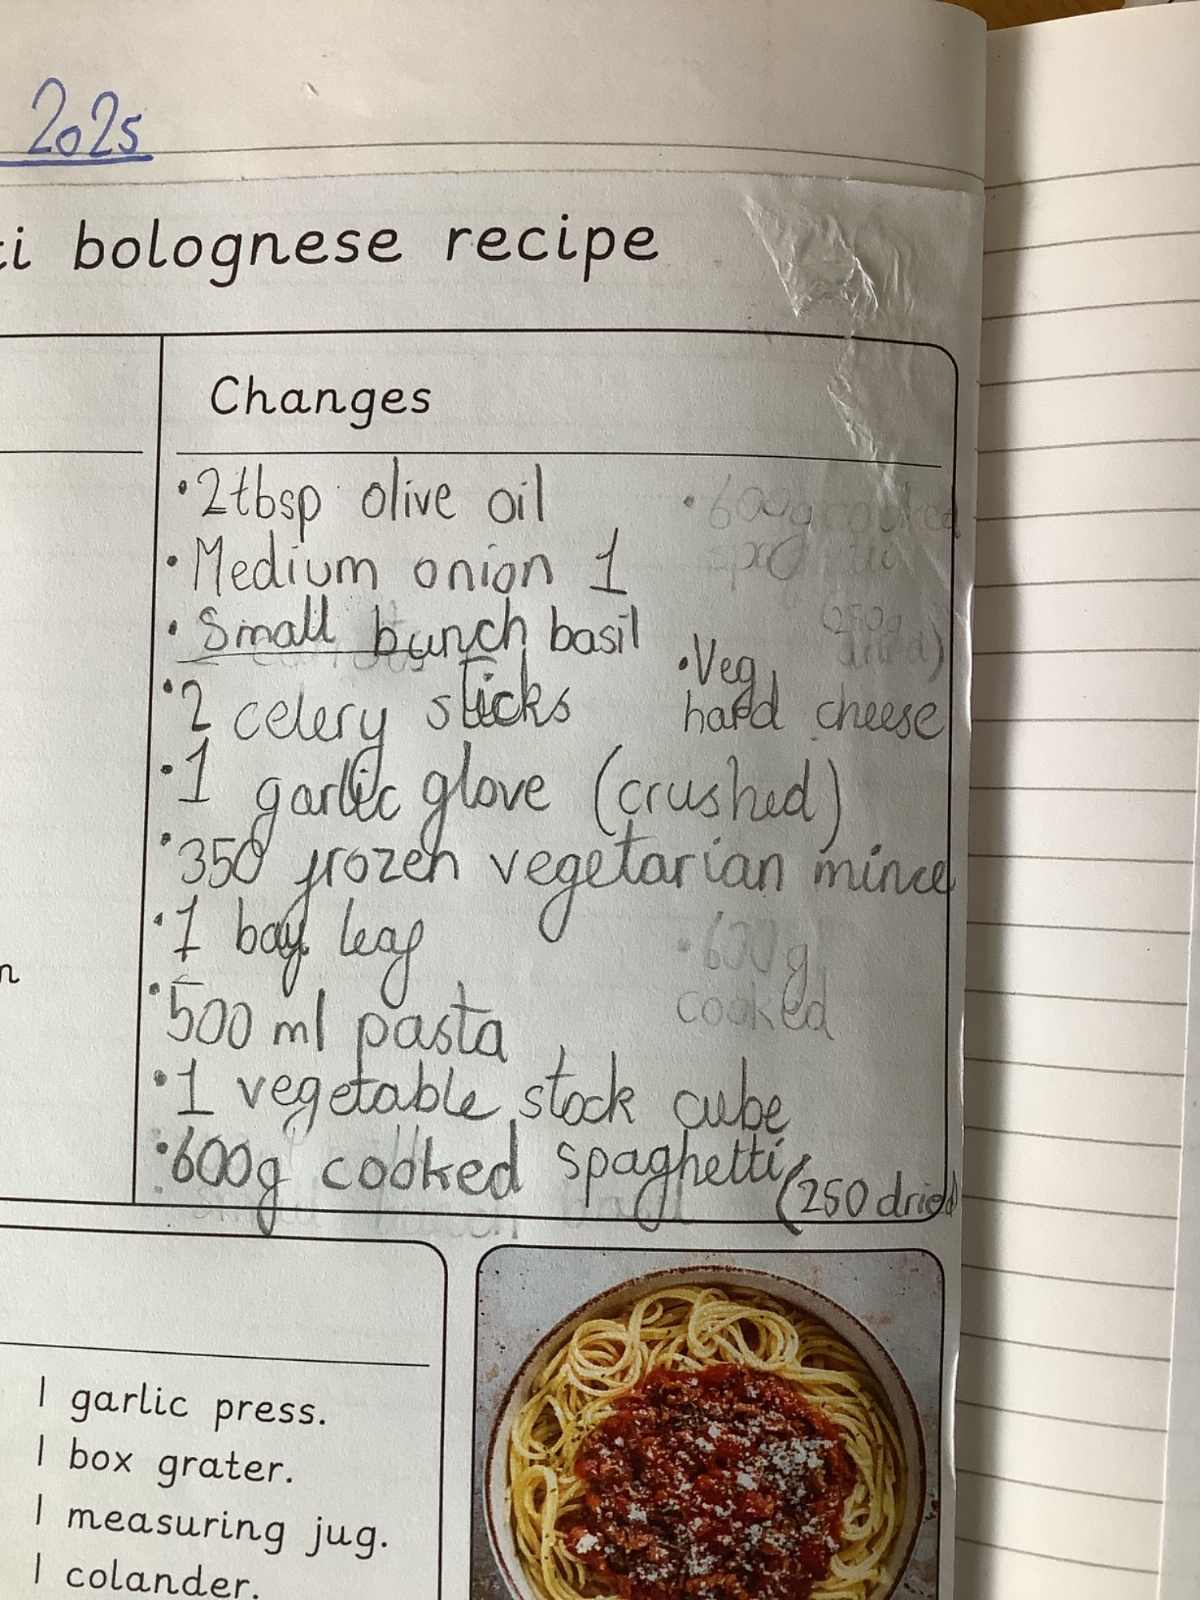 2025
ti bolognese recipe
Changes
•2tbsp olive oil
•Medium onion 1
•Small bunch basil
•2 celery sticks
•1 garlic glove (crushed)
•350 frozen vegetarian mince
•1 bay leaf
•500 ml pasta
•1 vegetable stock cube
•600g cooked spaghetti (250 dried
•600g cooked
250g
dried)
•Veg
hard cheese
•600g
cooked
small bunch basil
n
1 garlic press.
1 box grater.
1 measuring jug.
1 colander.